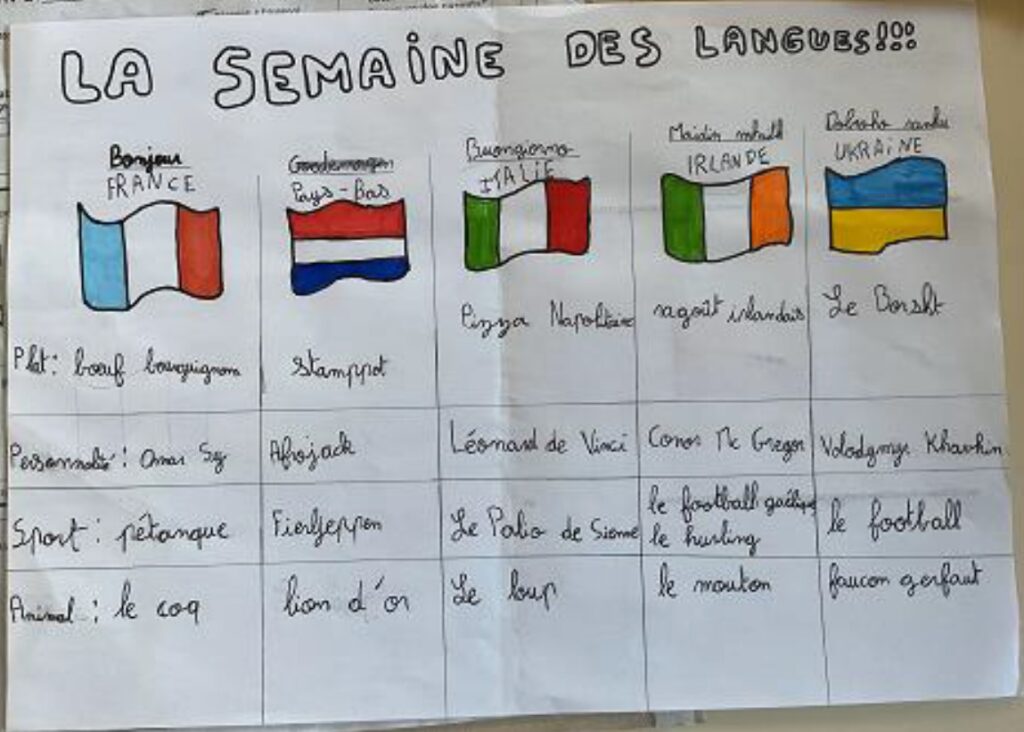 LA SEMAINE DES LANGUES!!!
Bonjour
FRANCE
Goodemorgen
Pays-Bas
Buongiorno
ITALIE
Maidin mhaith
IRLANDE
UKRAINE
Plat: bœuf bourguignon
stamppot
Pizza Napolitaine
ragoût irlandais
Le Borsht
Personnalité: Omar Sy
Afrojack
Léonard de Vinci
Conor Mc Gregor
Volodymyr Khavkin
Sport: pétanque
Fierljeppen
Le Palio de Sienne
le football gaélique
le hurling
le football
Animal: le coq
lion d'or
Le loup
le mouton
faucon gerfaut